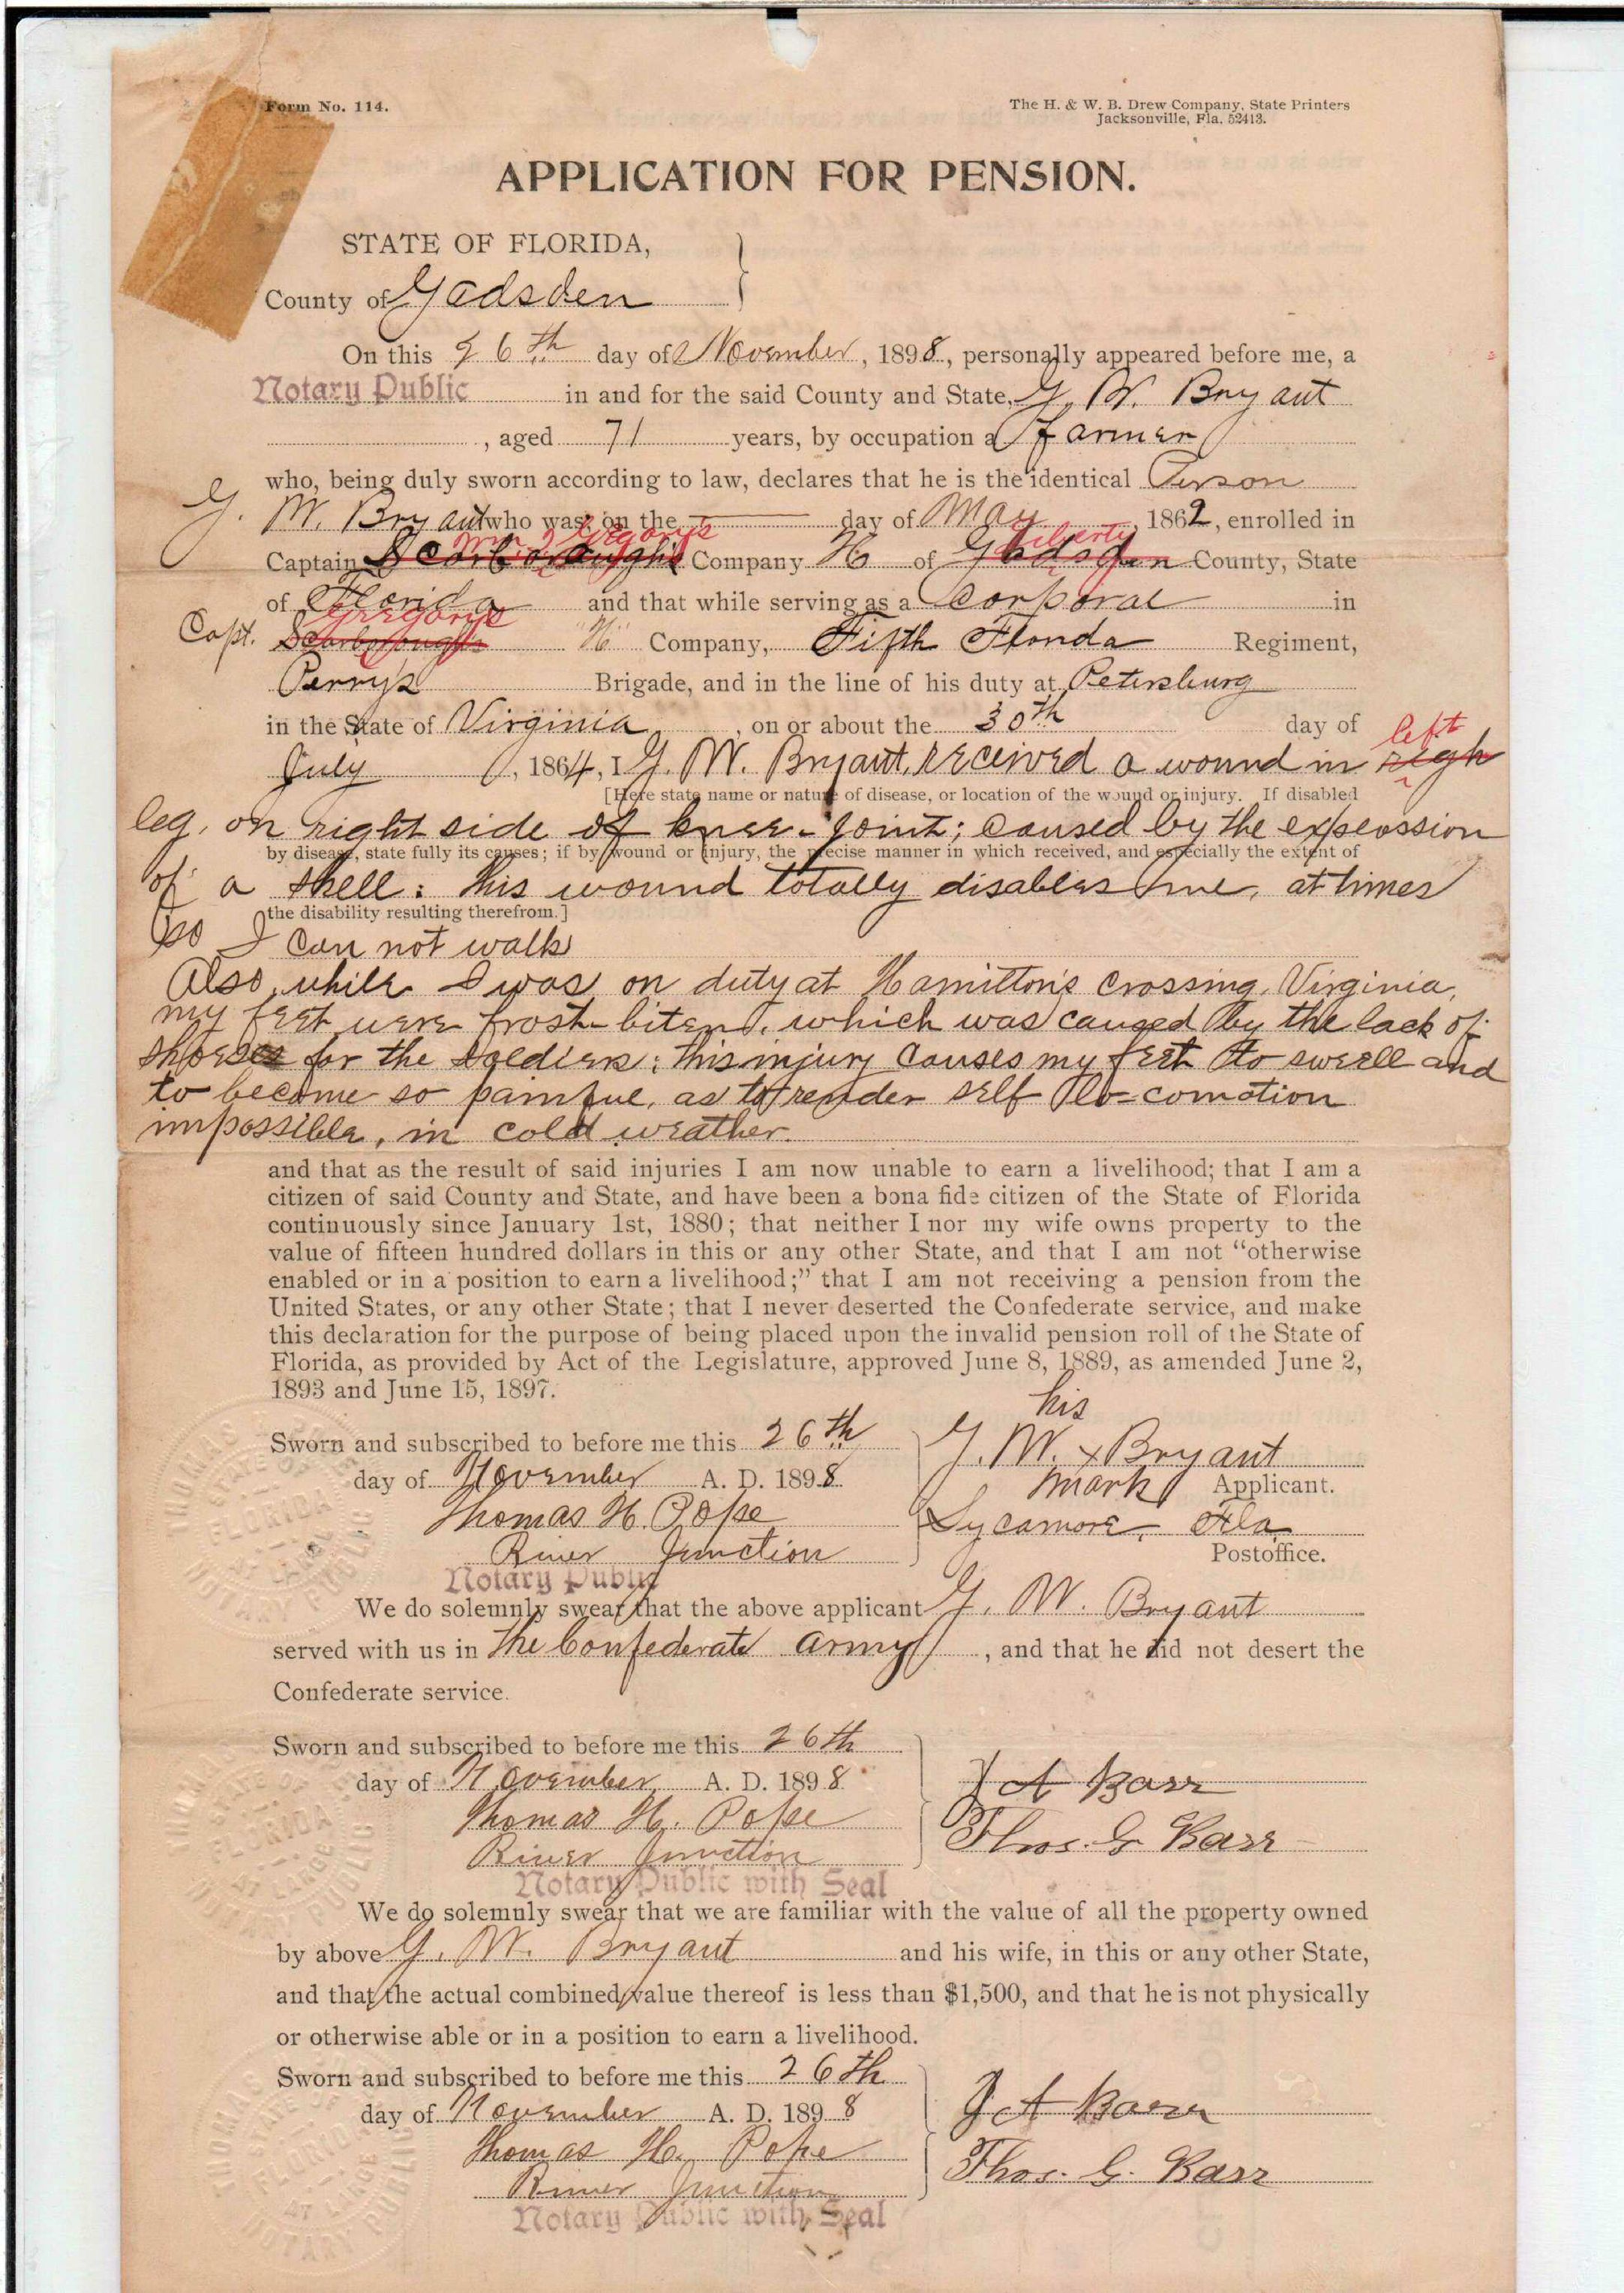 Form No. 114.
The H. & W. B. Drew Company, State Printers
Jacksonville, Fla. 52413.
APPLICATION FOR PENSION.
STATE OF FLORIDA,
County of Gadsden
On this 26th day of November, 1898, personally appeared before me, a
Notary Public in and for the said County and State, G. W. Bryant
, aged 71 years, by occupation a farmer
who, being duly sworn according to law, declares that he is the identical Person
G. W. Bryant who was, on the day of May, 1862, enrolled in
Gregory's Liberty
Captain Scarborough's Company H of Gadsden County, State
of Florida and that while serving as a Corporal in
Gregory's
Capt. Scarborough "H" Company, Fifth Florida Regiment,
Perry's Brigade, and in the line of his duty at Petersburg
in the State of Virginia, on or about the 30th day of
left
July, 1864, I G. W. Bryant, received a wound in righ
[Here state name or nature of disease, or location of the wound or injury. If disabled
leg, on right side of knee-joint; caused by the explossion
by disease, state fully its causes; if by wound or injury, the precise manner in which received, and especially the extent of
of a shell: this wound totally disables me, at times
the disability resulting therefrom.]
so I can not walk
Also, while I was on duty at Hamilton's Crossing, Virginia,
my feet were frost-biten, which was caused by the lack of
shoes for the soldiers; this injury causes my feet to swell and
to become so painful, as to render self lo=comotion
impossible, in cold weather.
and that as the result of said injuries I am now unable to earn a livelihood; that I am a
citizen of said County and State, and have been a bona fide citizen of the State of Florida
continuously since January 1st, 1880; that neither I nor my wife owns property to the
value of fifteen hundred dollars in this or any other State, and that I am not "otherwise
enabled or in a position to earn a livelihood;" that I am not receiving a pension from the
United States, or any other State; that I never deserted the Confederate service, and make
this declaration for the purpose of being placed upon the invalid pension roll of the State of
Florida, as provided by Act of the Legislature, approved June 8, 1889, as amended June 2,
1893 and June 15, 1897.
his
Sworn and subscribed to before me this 26th G. W. x Bryant
day of November A. D. 1898 mark Applicant.
Thomas H. Pope Sycamore, Fla
River Junction Postoffice.
Notary Public
We do solemnly swear that the above applicant G. W. Bryant
served with us in the Confederate army, and that he did not desert the
Confederate service.
Sworn and subscribed to before me this 26th
day of November A. D. 1898 J A Barr
Thomas H. Pope Thos. G Barr
River Junction
Notary Public with Seal
We do solemnly swear that we are familiar with the value of all the property owned
by above G. W. Bryant and his wife, in this or any other State,
and that the actual combined value thereof is less than $1,500, and that he is not physically
or otherwise able or in a position to earn a livelihood.
Sworn and subscribed to before me this 26th
day of November A. D. 1898 J A Barr
Thomas H. Pope Thos. G. Barr
River Junction
Notary Public with Seal